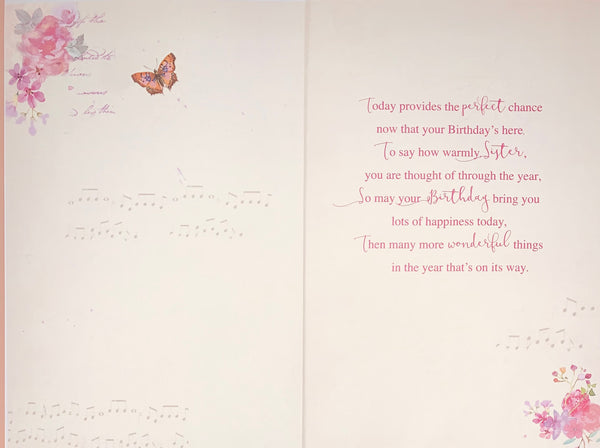 Today provides the perfect chance
now that your Birthday's here.
To say how warmly, Sister,
you are thought of through the year,
So may your Birthday bring you
lots of happiness today,
Then many more wonderful things
in the year that's on its way.